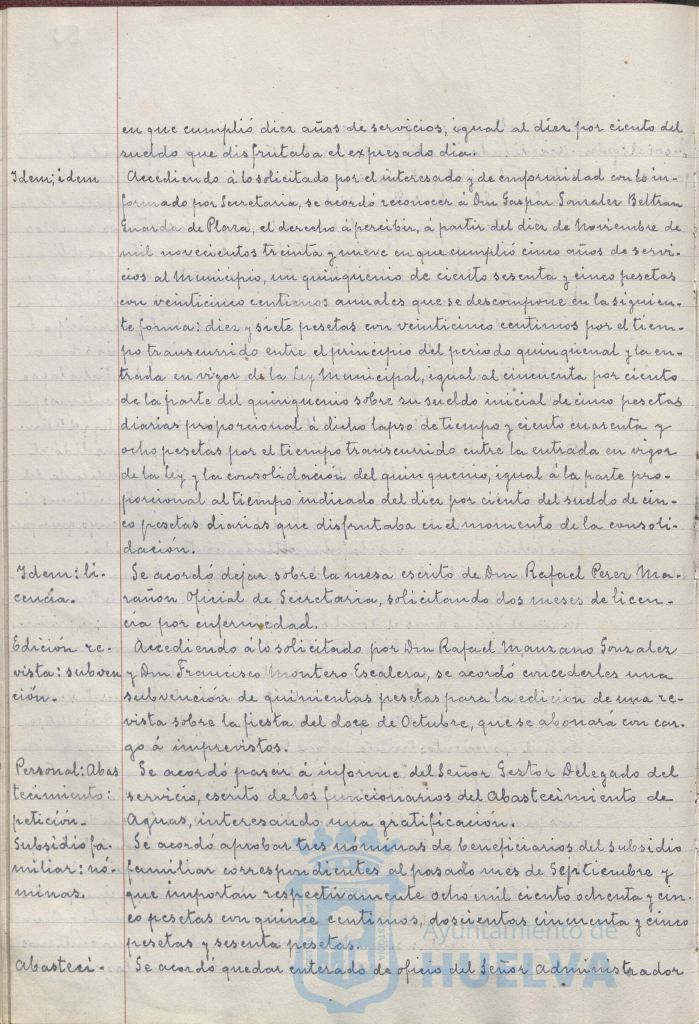 en que cumplió diez años de servicios, igual al diez por ciento del
sueldo que disfrutaba el expresado dia.
Idem; idem
Accediendo á lo solicitado por el interesado y de conformidad con lo in-
formado por Secretaria, se acordó reconocer á Don Gaspar Gonzalez Beltran
Guarda de Plaza, el derecho á percibir, á partir del diez de Noviembre de
mil novecientos treinta y nueve en que cumplió cinco años de servi-
cios al Municipio, un quinquenio de ciento sesenta y cinco pesetas
con veinticinco centimos anuales que se descompone en la siguien-
te forma: diez y siete pesetas con veinticinco centimos por el tiem-
po transcurrido entre el principio del periodo quinquenal y la en-
trada en vigor de la Ley Municipal, igual al cincuenta por ciento
de la parte del quinquenio sobre su sueldo inicial de cinco pesetas
diarias proporcional á dicho lapso de tiempo y ciento cuarenta y
ocho pesetas por el tiempo transcurrido entre la entrada en vigor
de la ley y la consolidación del quinquenio, igual á la parte pro-
porcional al tiempo indicado del diez por ciento del sueldo de cin-
co pesetas diarias que disfrutaba en el momento de la consoli-
dación.
Idem: li-
cencia.
Se acordó dejar sobre la mesa escrito de Don Rafael Perez Ma-
rañon Oficial de Secretaria, solicitando dos meses de licen-
cia por enfermedad.
Edición re-
vista: subven
ción.
Accediendo á lo solicitado por Don Rafael Manzano Gonzalez
y Don Francisco Montero Escalera, se acordó concederles una
subvención de quinientas pesetas para la edicion de una re-
vista sobre la fiesta del doce de Octubre, que se abonará con car-
go á imprevistos.
Personal: Abas
tecimiento:
petición.
Se acordó pasar á informe del Señor Gestor Delegado del
servicio, escrito de los funcionarios del Abastecimiento de
Aguas, interesando una gratificación.
Subsidio fa-
miliar: nó-
minas.
Se acordó aprobar tres nominas de beneficiarios del subsidio
familiar correspondientes al pasado mes de Septiembre y
que importan respectivamente ocho mil ciento ochenta y cin-
co pesetas con quince centimos, doscientas cincuenta y cinco
pesetas y sesenta pesetas.
Abasteci-
Se acordó quedar enterado de oficio del Señor Administrador
Ayuntamiento de
HUELVA